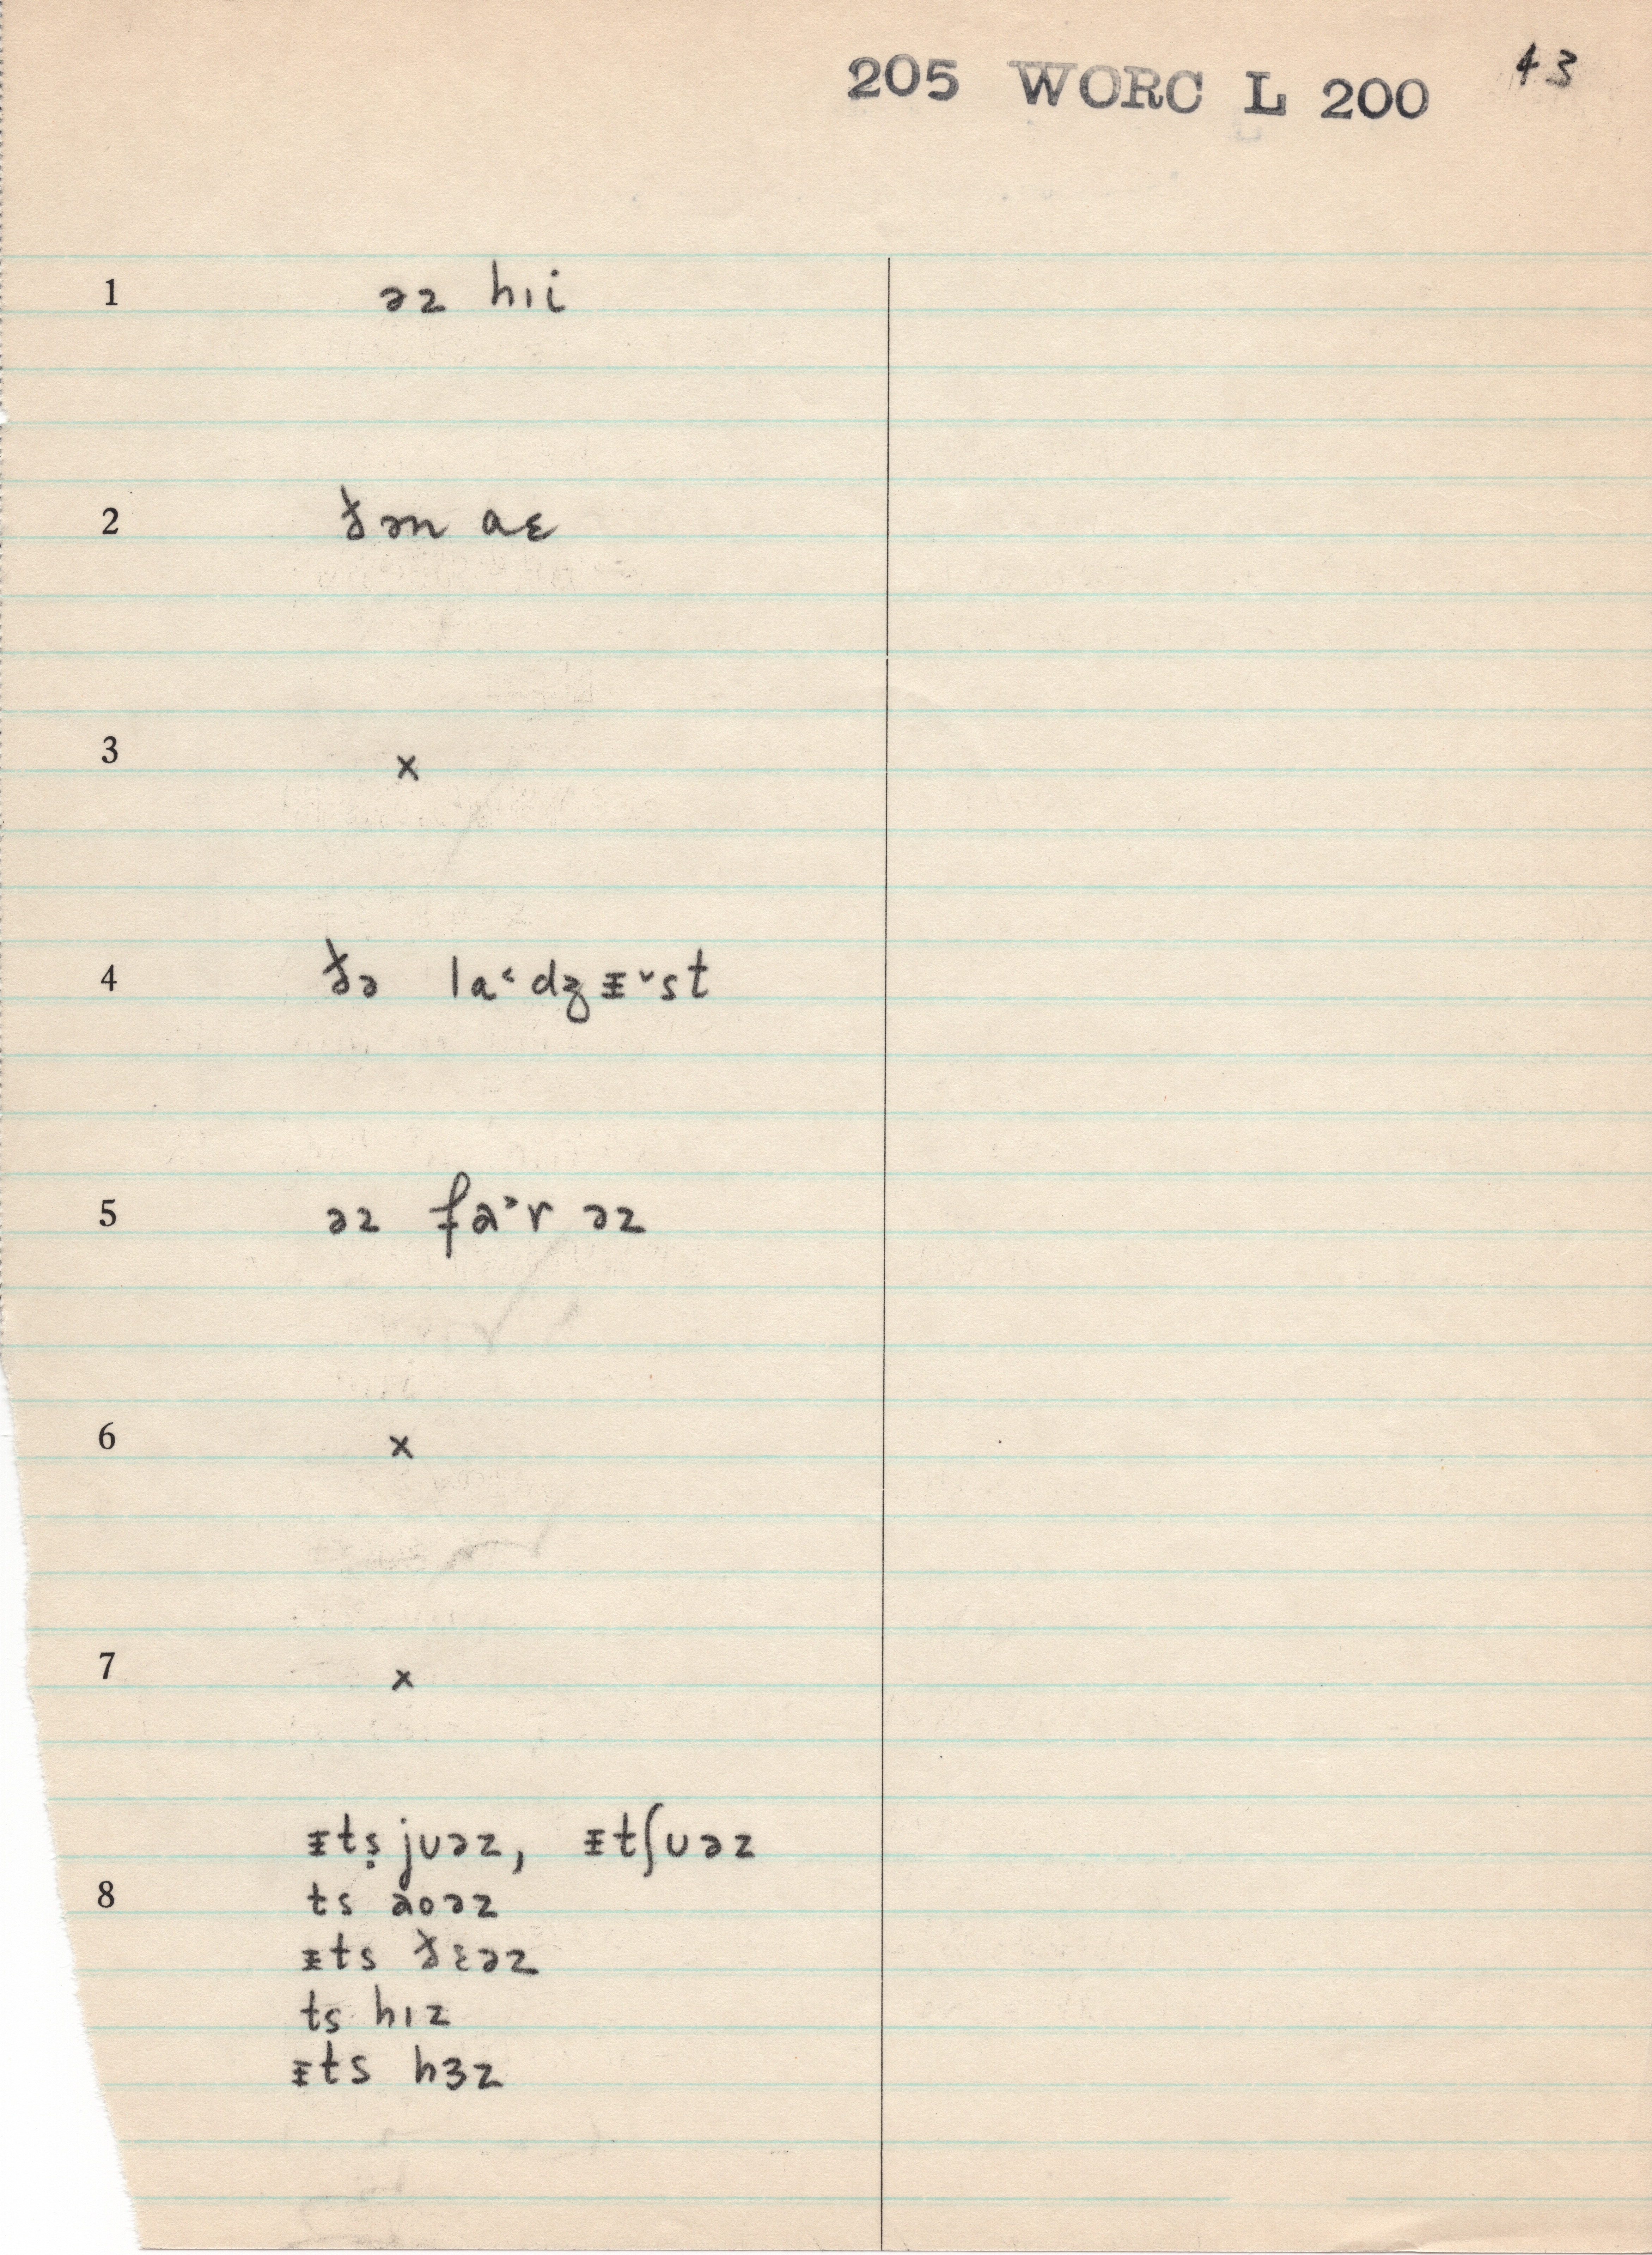 205 WORC L 200 43
1 əz hıi
2 ðən aɛ
3 x
4 ðə la˂dʒᵻ˅st
5 əz fa˃r əz
6 x
7 x
ᵻtṣjuəz, ᵻtʃuəz
8 ts aoəz
ᵻts ðɛəz
ts hız
ᵻts hɜz